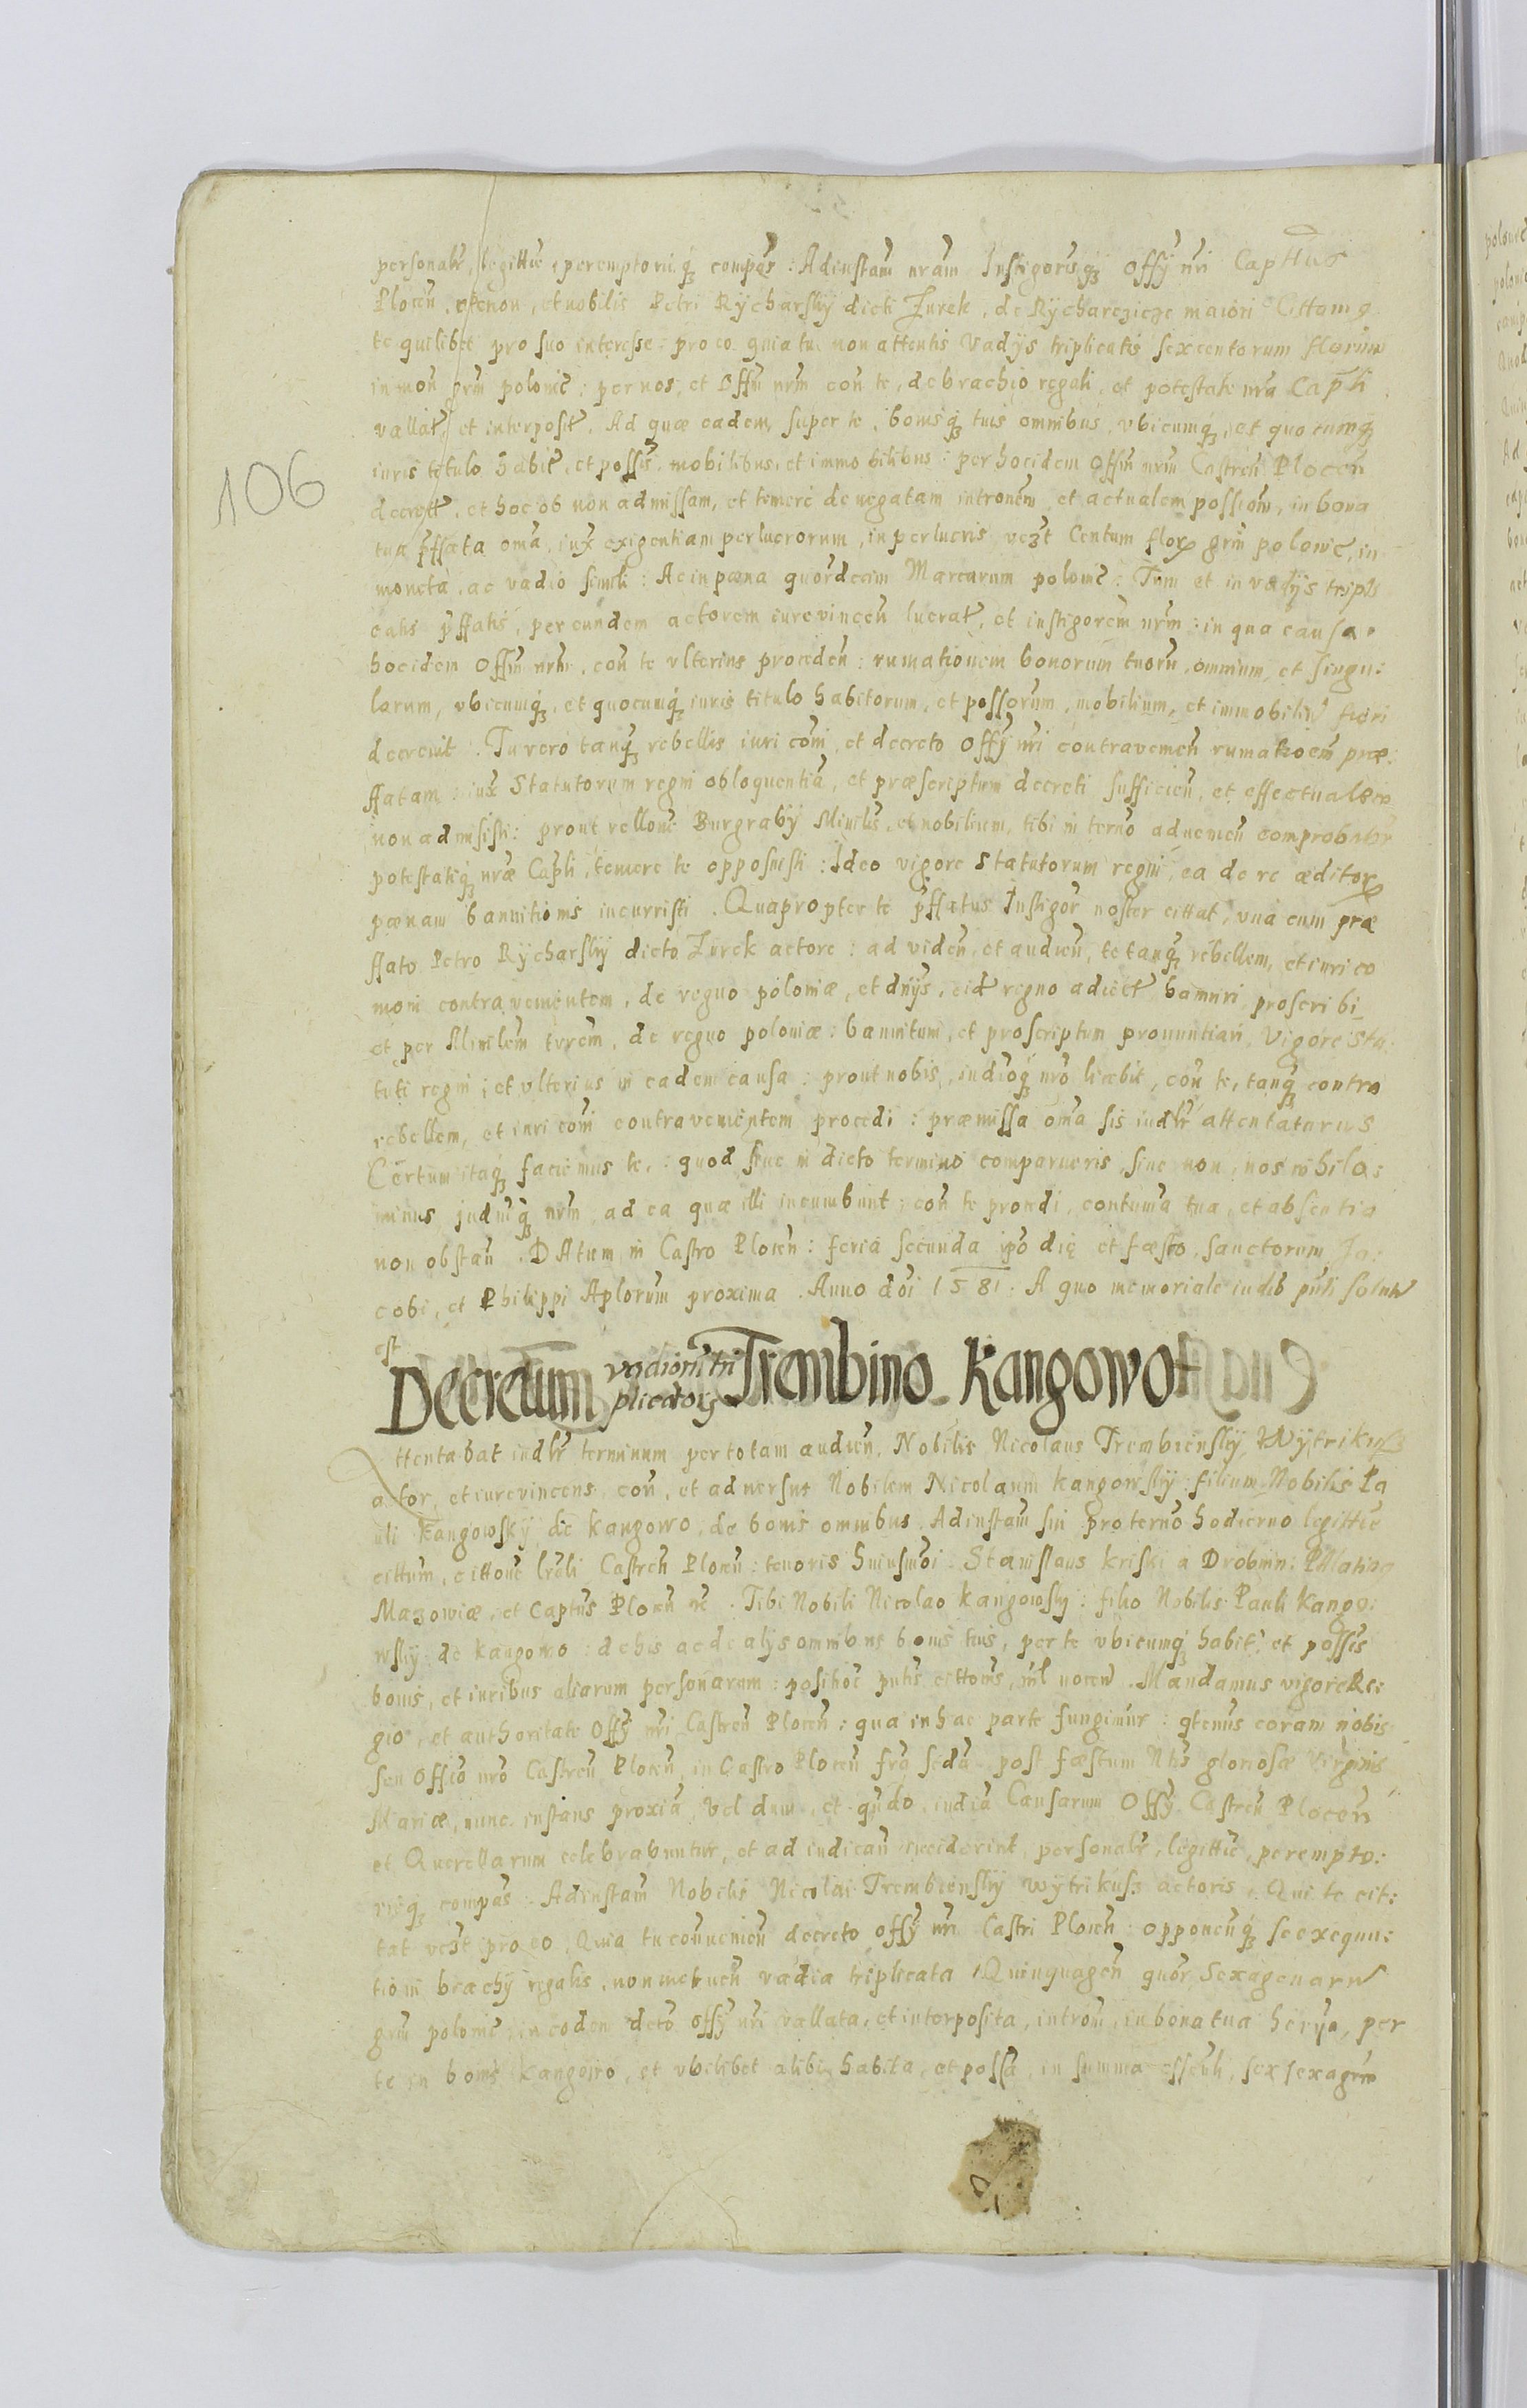 106
personalr, legittie, peremptorieq; compas : Ad instam nram Instigorisq; Offy nri Capttus
Plocen, et non, et nobilis Petri Rycharsky dicti Zurek, de Rycharczicze maiori Cittam9
te quilibet pro suo interesse: pro eo quia tu non attentis vadys triplicatis sexcentorum florum
in mon grm polonic: per nos, et Offm nrm con te, de brachio regali, et potestate nra Capli
vallat, et interposit. Ad quæ eadem, super te, bonisq; tuis omnibus, vbicumq;, et quocumq;
iuris titulo habit, et possis, mobilibus, et immobilibus: per hocidem Offm nrm Castren Plocen
decrett, et hoc ob non admissam, et temere denegatam intronem, et actualem possiom, in bona
tua pffata oma, iux exigentiam perlucrorum, in perlucris vezt Centum flor grm polonic, in
moneta, ac vadio simili: Ac in pœna quordecim Marcarum polonic: Tum et in vadys tripli
catis pffatis, per eundem actorem iurevincen lucrat, et instigorem nrm: in qua causa
hocidem Offm nrm, con te vlterius proceden: rumationem bonorum tuoru, omnium, et singu:
larum, vbicumq;, et quocumq; iuris titulo habitorum, et possorum, mobilium, et immobiliu fieri
decrevit. Tu vero tanq; rebellis iuri comi, et decreto Offy nri contravenien rumatioem præ:
ffatam: iux Statutorum regni obloquentia, et præscriptum decreti sufficien, et effectualem
non admisisti: prout rellone Burgraby Minilis, et nobilium, tibi in terno advenien comprobabr
potestatiq; nræ Capli, temere te opposuisti: Ideo vigore Statutorum regni, ea de re æditor
pœnam bannitionis incurristi. Quapropter te pffatus Instigor noster cittat, vna cum præ
ffato Petro Rycharsky dicto Zurek actore: ad viden, et audien, te tanq; rebellem, et iuri co
moni contravenientem, de regno poloniæ, et dnys, eid regno adiect banniri, proscribi
et per Minilem tvrem, de regno poloniæ: bannitum, et proscriptum pronuntiari, Vigore Sta
tuti regni; et vlterius in eadem causa: prout nobis, indioq; nro licebit, con te, tanq; contra
rebellem, et iuri comi contravenientem procedi: præmissa oma sis iudlr attentaturus
Certum itaq; facimus te,: quod siue in dicto termino comparueris, siue non, nos nihilo:
minus judmq; nrm, ad ea quæ illi incumbunt; con te procedi, contuma tua, et absentia
non obstan. DAtum in Castro Plocen: feria secunda ipo die et fæsto, Sanctorum Ja:
cobi, et Philippi Aplorum proxima. Anno doi 1581. A quo memoriale iudib pnti solutu
est
Decretum vadiorum tri
plicator Trembino Kangowo
Attentabat iudlr terminum per totam audien, Nobilis Nicolaus Trembiensky Wytrikusz
actor, et iurevincens, con, et adversus Nobilem Nicolaum Kangowsky: filium Nobilis Pa
uli Kangowsky de Kangowo, de bonis omnibus. Ad instam sui pro terno hodierno legittie
cittum, cittone lrali Castren Plocen: tenoris huiusmoi. Stanislaus Kriski a Drobnin: PAlatinus
Mazowiæ, et Captus Plocen etc. Tibi Nobili Nicolao Kangowsky: filio Nobilis Pauli Kango:
wsky de Kangowo: de his ac de alys omnibus bonis tuis, per te vbicumq; habit, et possis
bonis, et iuribus aliarum personarum: positioe pntis cittonis, nil nocen. Mandamus vigore Re:
gio, et authoritate Offy nri Castren Plocen: qua in hac parte fungimur: qtenus coram nobis
seu Offio nro Castren Plocen, in Castro Plocen fra scda post fæstum Ntis gloriosæ Virginis
Mariæ, nunc instans proxia, Vel dum, et qndo, iudia Causarum Offy Castren Plocen
et Querellarum celebrabuntur, et ad iudican inciderint, personalr, legittie, perempto:
rieq; compas. Ad instam Nobilis Nicolai Trembiensky wytrikusz actoris: Qui te cit:
tat vezt pro eo, Quia tu convenien decreto offy nri Castri Plocen: opponenq; se exequu:
tioni brachy regalis, non metuen vadia triplicata Quinquagen quor Sexagenaru
grm polonic, in eodem dcto offy nri vallata, et interposita, introm, in bona tua herda, per
te in bonis Kangowo, et vbilibet alibi habita, et possa, in summa essenli, sex sexagrm